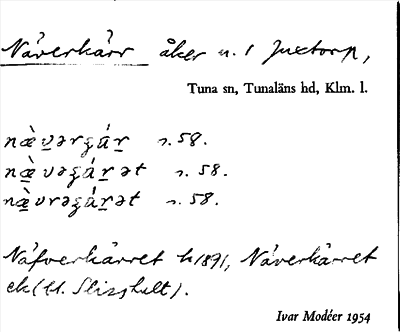 Näverkärr åker n. 1 Juxtorp,
Tuna sn, Tunaläns hd, Klm. l.
næ̀vərʒár r. 58.
næ̀vəʒárət r. 58.
næ̀vrəʒárət r. 58.
Näfverkärret h 1891, Näverkärret
ek (Lt. Slizshult).
Ivar Modéer 1954